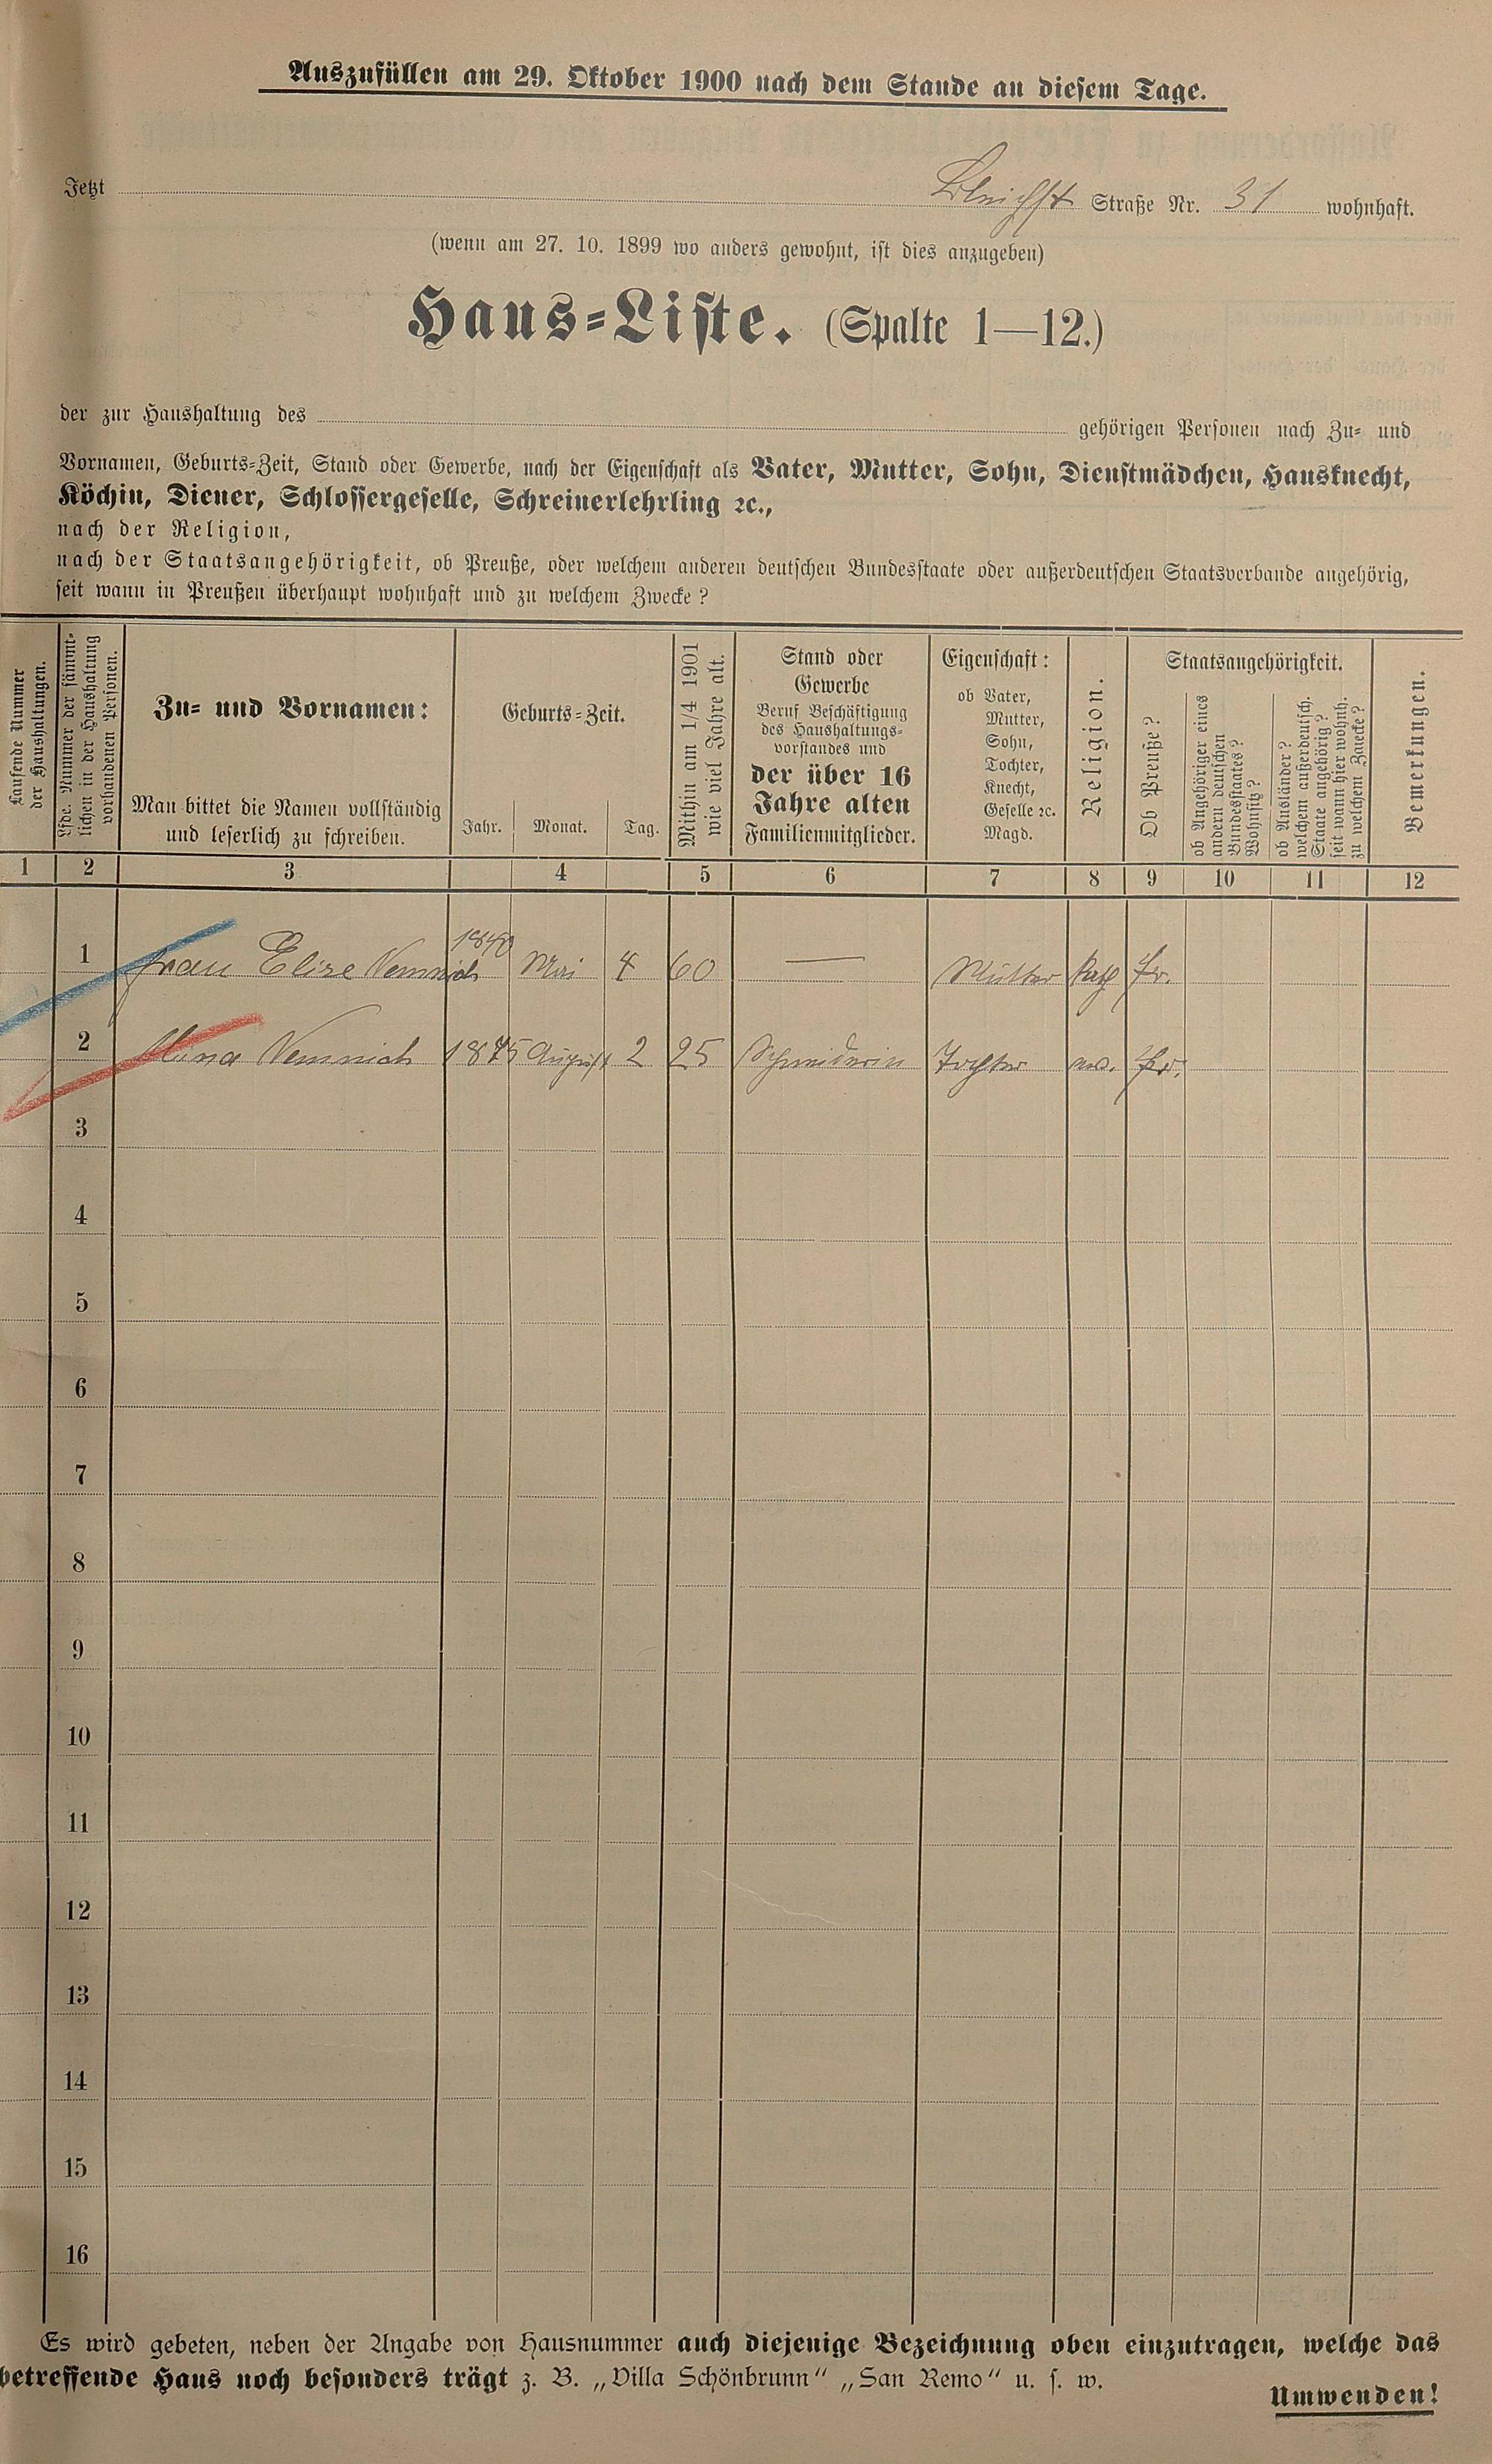 Auszufüllen am 29. Oktober 1900 nach dem Stande an diesem Tage.
Jetzt Bleichst Straße Nr. 31 wohnhaft.
(wenn am 27. 10. 1899 wo anders gewohnt, ist dies anzugeben)
Haus-Liste. (Spalte 1—12.)
der zur Haushaltung des gehörigen Personen nach Zu- und
Vornamen, Geburts-Zeit, Stand oder Gewerbe, nach der Eigenschaft als Vater, Mutter, Sohn, Dienstmädchen, Hausknecht,
Köchin, Diener, Schlossergeselle, Schreinerlehrling ꝛc.,
nach der Religion,
nach der Staatsangehörigkeit, ob Preuße, oder welchem anderen deutschen Bundesstaate oder außerdeutschen Staatsverbande angehörig,
seit wann in Preußen überhaupt wohnhaft und zu welchem Zwecke?
Laufende Nummer
der Haushaltungen.
Lfde. Nummer der sämmt-
lichen in der Haushaltung
vorhandenen Personen.
Zu- und Vornamen:
Man bittet die Namen vollständig
und leserlich zu schreiben.
Geburts-Zeit.
Jahr. Monat. Tag.
Mithin am 1/4 1901
wie viel Jahre alt.
Stand oder
Gewerbe
Beruf Beschäftigung
des Haushaltungs-
vorstandes und
der über 16
Jahre alten
Familienmitglieder.
Eigenschaft:
ob Vater,
Mutter,
Sohn,
Tochter,
Knecht,
Geselle ꝛc.
Magd.
Religion.
Staatsangehörigkeit.
Ob Preuße?
ob Angehöriger eines
andern deutschen
Bundesstaates?
Wohnsitz?
ob Ausländer?
welchem außerdeutsch.
Staate angehörig?
seit wann hier wohnh.
zu welchem Zwecke?
Bemerkungen.
1 2 3 4 5 6 7 8 9 10 11 12
1 Frau Elise Nemnich 1840 Mai 4 60 — Mutter Kath Pr.
2 Nemnich 1875 August 2 25 Schneiderin Tochter Pr.
3
4
5
6
7
8
9
10
11
12
13
14
15
16
Es wird gebeten, neben der Angabe von Hausnummer auch diejenige Bezeichnung oben einzutragen, welche das
betreffende Haus noch besonders trägt z. B. „Villa Schönbrunn" „San Remo" u. s. w.
Umwenden!